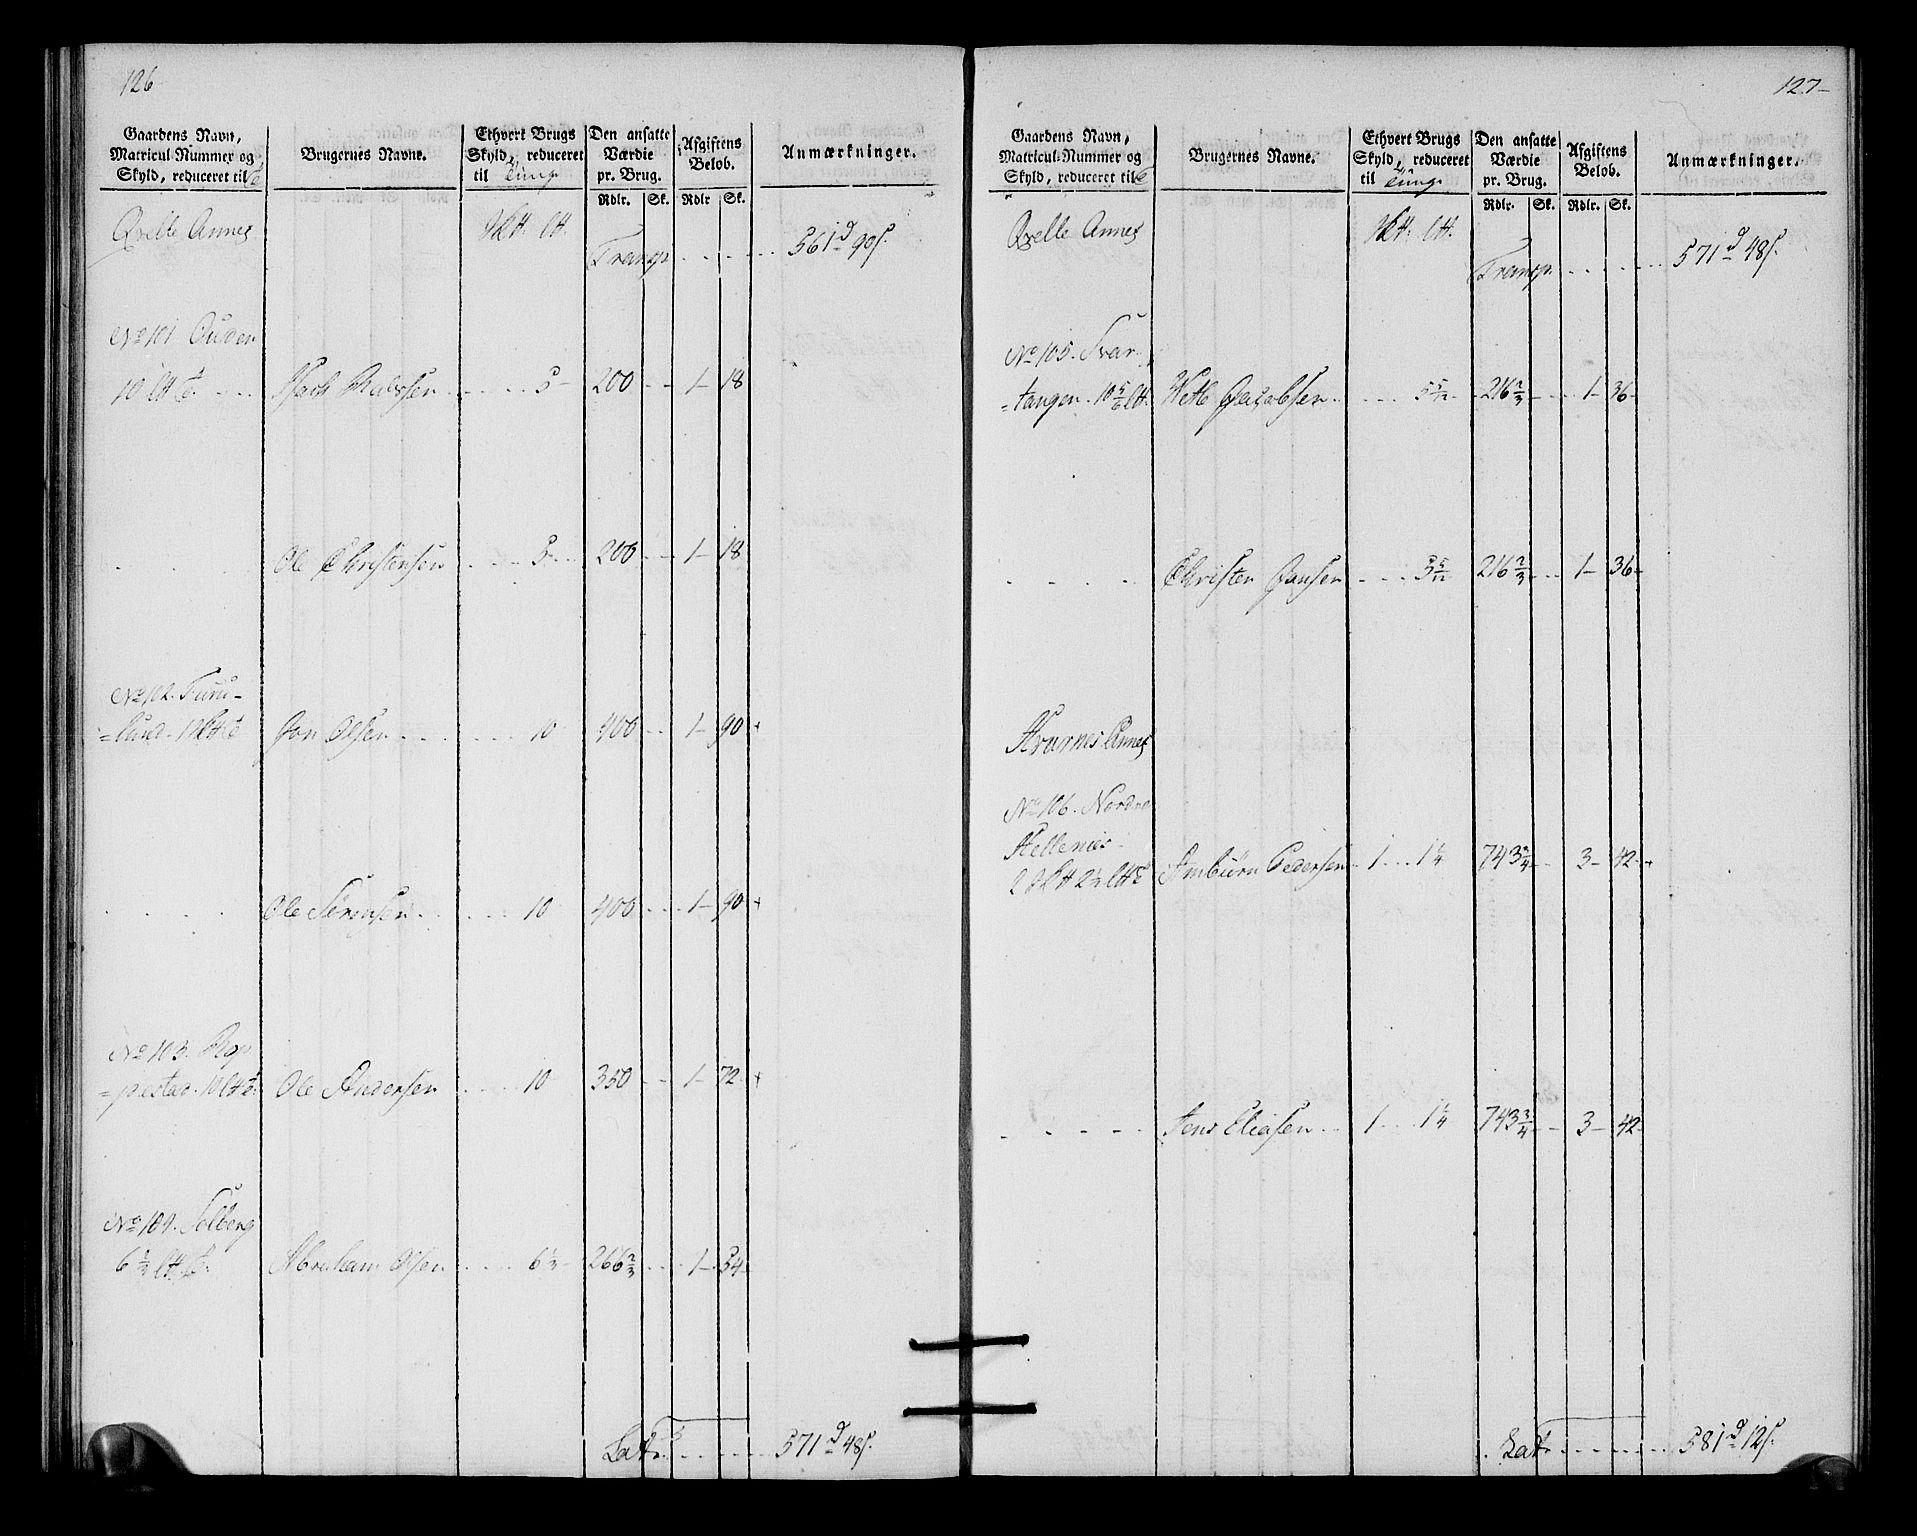 126
Gaardens Navn, Matricul-Nummer og Skyld, reduceret til
Brugernes Navne.
Ethvert Brugs Skyld, reduceret til Tunge
Den ansatte Værdie pr. Brug.
Rdlr. Sk.
Afgiftens Belob.
Rdlr Sk.
Anmærkninger.
Qvelle Annex
Transp. . . . . . 561 d 90 s.
No 101 Ouden
10 . . . Rabssen . . . . 5 - 200 - - 1 - 18
. . . Ole Christensen . . . 5 - . . 200 - - 1 - 18
No 102. Furu-
=lund. Jon Olsen . . . . . 10 400 - - 1 - 90
. . . . Ole Sörensen . . . . 10 400 - - 1 - 90
No 103. Rop
=pestad. 10 Ole Andersen . . . 10 350 - - 1 - 72
No 104. Solberg
6 2/3 Abraham Olsen . . . . 6 2/3 266 2/3 . . . 1 - 54
Lat. . . . . . 571 d 48 s.
127
Gaardens Navn, Matricul-Nummer og Skyld, reduceret til
Brugernes Navne.
Ethvert Brugs Skyld, reduceret til Tunge
Den ansatte Værdie pr. Brug.
Rdlr. Sk.
Afgiftens Belob.
Rdlr. Sk.
Anmærkninger.
Qvelle Annex
Transp. . . . . . 571 d 48 s.
No 105. Svar-
=tangen. 10 5/6 Jacobsen . . . . 5 5/12 216 2/3 - - 1 - 36
. . . . Christen Jansen . . . 5 5/12 216 2/3 . . . 1 - 36
Hvarnes Annex
No 106. Nordre
Hellenes
2 2 1/2 Ambiörn Pedersen 1 . . . 1 1/4 743 3/4 - - 3 - 42
. . . . Jens Eliasen . . 1 . . . 1 1/4 743 3/4 - - 3 - 42
Lat. . . . . . 581 d 12 s.